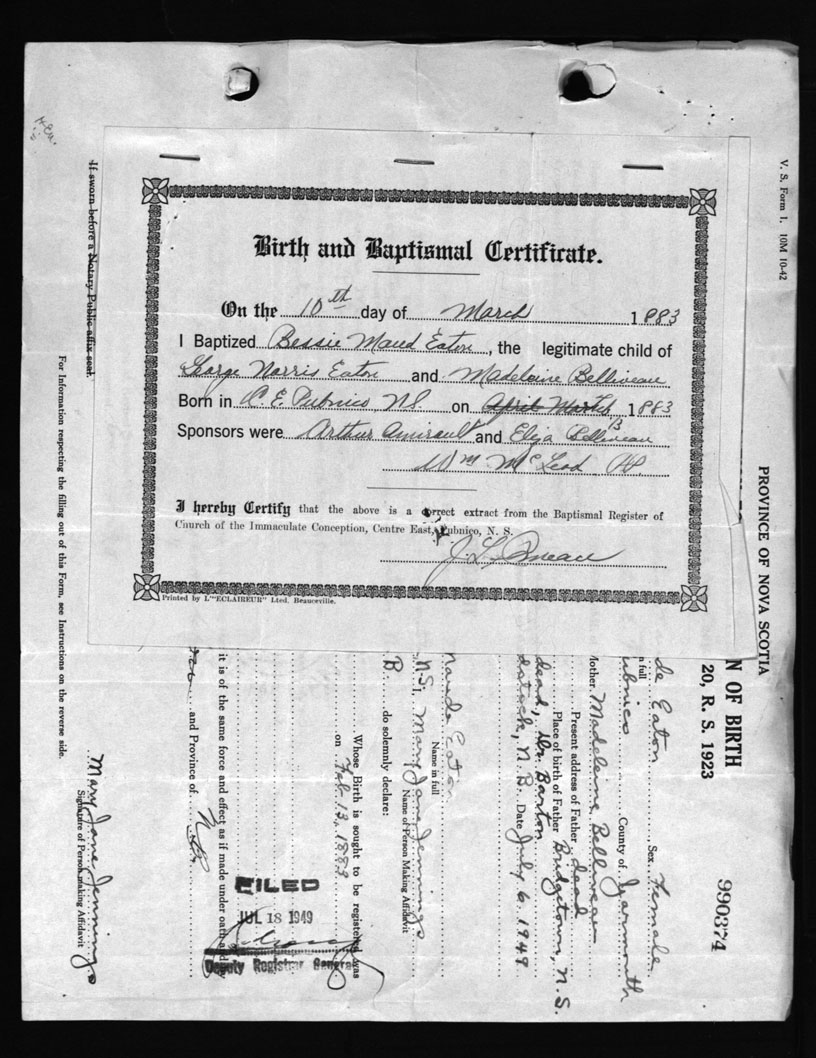 Birth and Baptismal Certificate.
On the 10th day of March 1883
I Baptized Bessie Maud Eaton, the legitimate child of
George Norris Eaton and Madeleine Belliveau
Born in C. E. Pubnico N.S. on April March 1883
13
Sponsors were Arthur Amirault and Eliza Belliveau
Wm McLeod
I hereby Certify that the above is a correct extract from the Baptismal Register of
Church of the Immaculate Conception, Centre East, Pubnico, N. S.
Printed by L'"ECLAIREUR" Ltd. Beauceville.
V. S. Form 1. 10M 10-42
PROVINCE OF NOVA SCOTIA
N OF BIRTH
20, R. S. 1923
990374
de Eaton Sex Female
n full
ubnico County of Yarmouth
Mother Madeleine Belliveau
Present address of Father dead
Place of birth of Father Bridgetown, N.S.
dead, Dr. Barton
N.B. Date July 6 1949
Maude Eaton
Name in full
N.S. I, Mary Jane Jennings
Name of Person Making Affidavit
B do solemnly declare:
Whose Birth is sought to be registered was
on Feb. 13, 1883
it is of the same force and effect as if made under oath and by
and Province of N.B.
Mary Jane Jennings
Signature of Person Making Affidavit
For Information respecting the filling out of this Form, see Instructions on the reverse side.
If sworn before a Notary Public affix seal.
FILED
JUL 18 1949
Deputy Registrar General